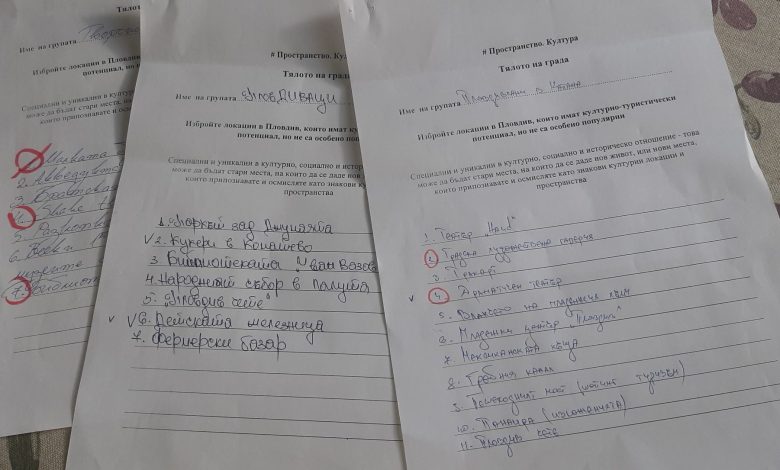 Тялото
Име на групата
Избройте локации в Пловдив
потенциал, но не
Специални и уникални в култур
може да бъдат стари места, на
които припознавате и осмисляте
1. Махата
2. Акведуктъ
3. Братска
4.
5.
6. Воен
7. Библиот
# Пространство. Кул
Тялото на града
Име на групата ПловДИВАЦИ
Избройте локации в Пловдив, които имат ку
потенциал, но не са особено популя
Специални и уникални в културно, социално и истор
може да бъдат стари места, на които да се даде нов ж
които припознавате и осмисляте като знакови ку
пространства
1. Паркът зад Джумаята
V 2. Кукери в Коматево
3. Библиотеката "Иван Вазов
4. Народният събор в
5. Пловдив чете"
V 6. Детската железница
7. Фермерски базар
# Пространство. Култура
Тялото на града
Име на групата
Избройте локации в Пловдив, които имат културно-туристически
потенциал, но не са особено популярни
Специални и уникални в културно, социално и историческо отношение - това
може да бъдат стари места, на които да се даде нов живот, или нови места,
които припознавате и осмисляте като знакови културни локации и
пространства
1. Театър „Hand"
2. Градска художествена галерия
3.
V 4. Драматичен театър
5. Влакчето на младежкия хълм
6. Младежки център „Пловдив"
7. Мексиканската къща
8. Гребния канал
9. Пешеходният мост (шопинг туризъм)
10. Панаира (изложенията)
11. Пловдив чете